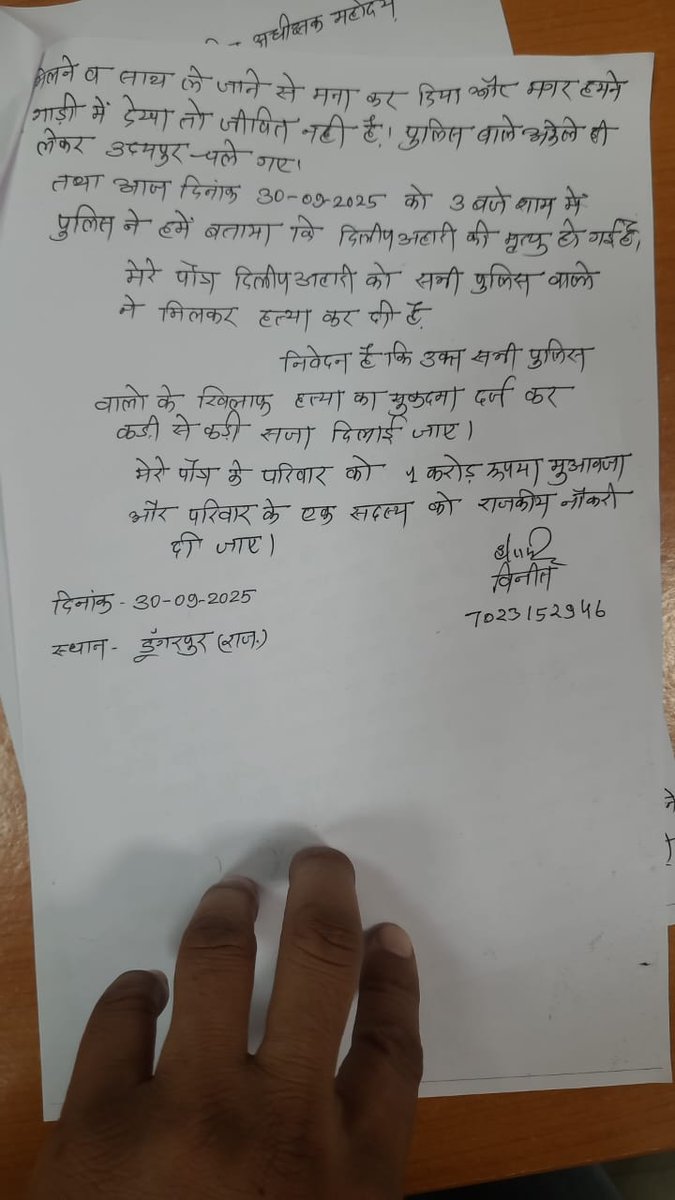 अधीक्षक महोदय,
मिलने व साथ ले जाने से मना कर दिया और मगर हमने
गाड़ी में देखा तो जीवित नही है। पुलिस वाले अकेले ही
लेकर उदयपुर चले गए।
तथा आज दिनांक 30-09-2025 को 3 बजे शाम में
पुलिस ने हमें बताया कि दिलीप अहारी की मृत्यु हो गई है,
मेरे पौत्र दिलीप अहारी को सभी पुलिस वाले
ने मिलकर हत्या कर दी है.
निवेदन है कि उक्त सभी पुलिस
वालो के खिलाफ हत्या का मुकदमा दर्ज कर
कडी से कडी सजा दिलाई जाए।
मेरे पौत्र के परिवार को 1 करोड़ रूपया मुआवजा
और परिवार के एक सदस्य को राजकीय नौकरी
दी जाए।
विनीत
दिनांक - 30-09-2025
7023152946
स्थान - डूँगरपुर (राज.)